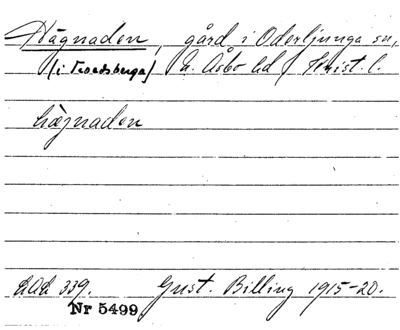 Hägnaden, gård i Oderljunga sn,
(i Troedsberga) N. Åsbo hd, Krist. l.
hægnaden
LAL 339. Gust. Billing 1915-20.
Nr 5499